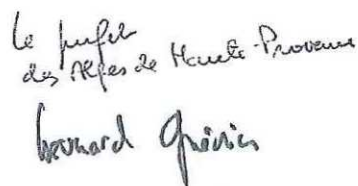 Le préfet
des Alpes de Haute-Provence
Bernard Guérin